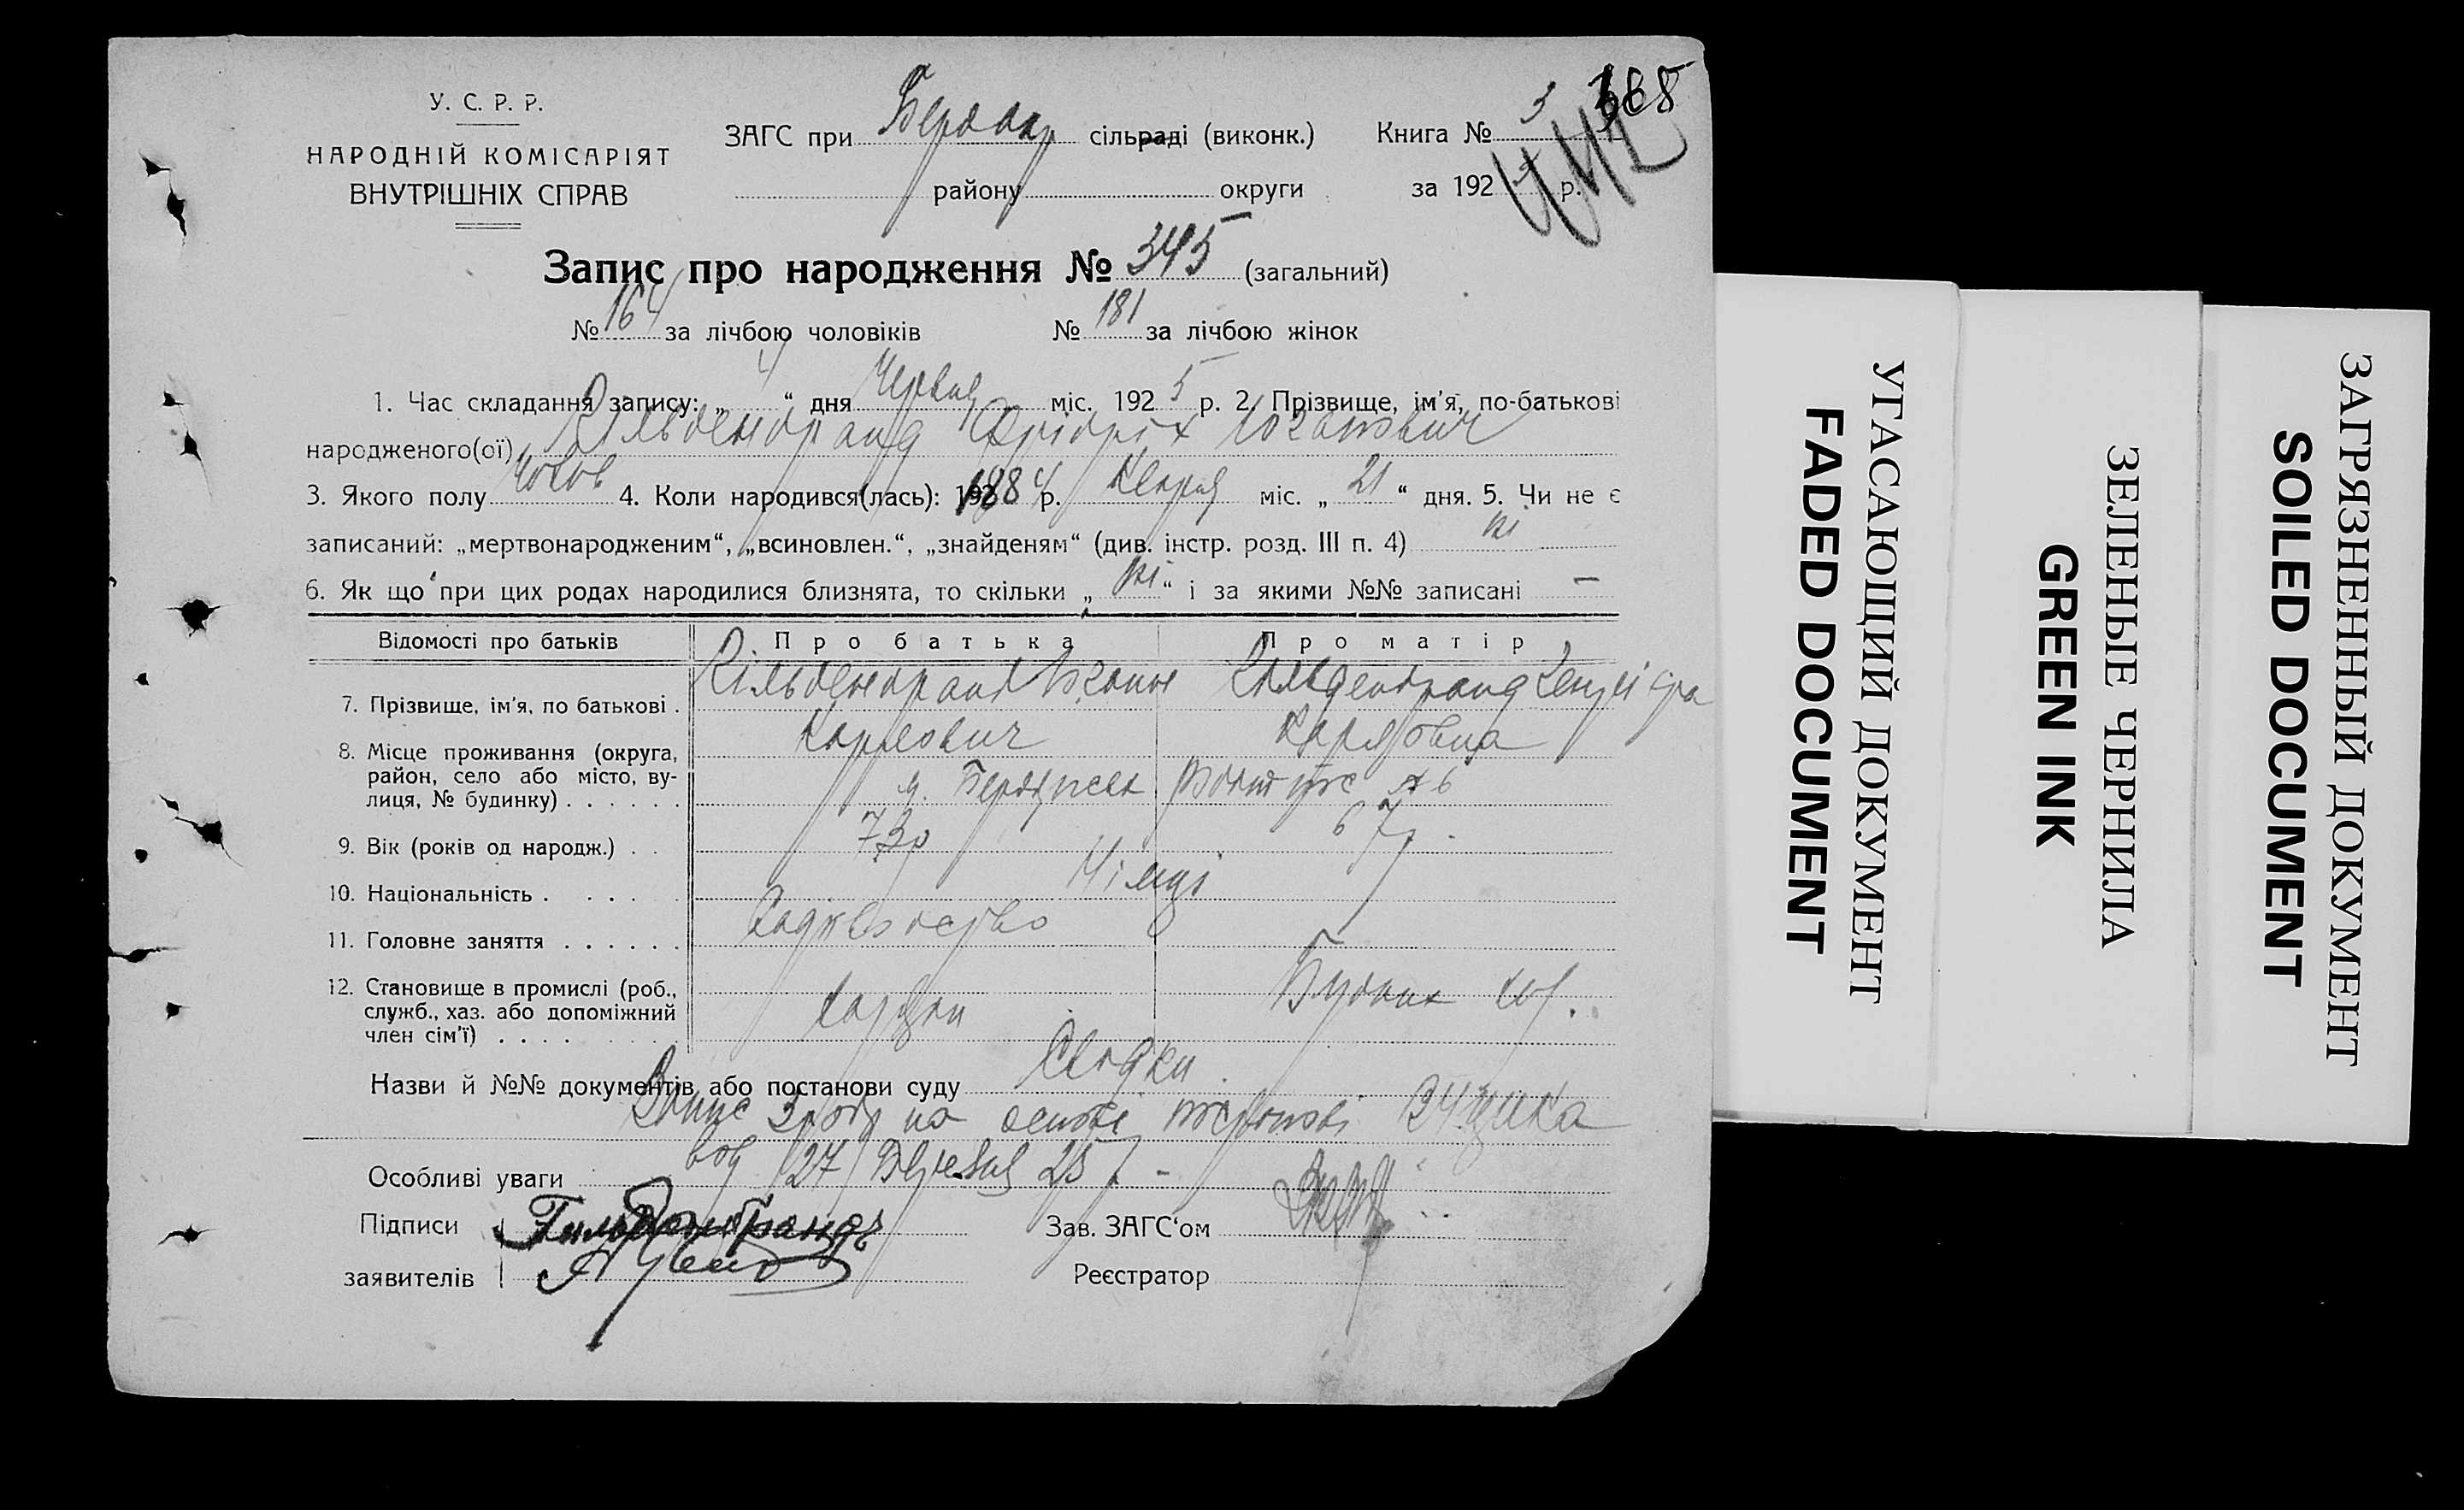 У. С. Р. Р.
НАРОДНІЙ КОМІСАРІЯТ
ВНУТРІШНІХ СПРАВ
ЗАГС при сільраді (виконк.) Книга № 3 368
442
району округи за 1925 р.
Запис про народження № 345 (загальний)
№ 164 за лічбою чоловіків № 181 за лічбою жінок
1. Час складання запису: „ 4 “ дня Червня міс. 1925 р. 2. Прізвище, ім'я, по-батькові
народженого(ої) Гільденбранд Фрідріх Іоганович
3. Якого полу чолов 4. Коли народився(лась): 1884 р. міс. „ 21 “ дня. 5. Чи не є
записаний: „мертвонародженим“, „всиновлен.“, „знайденям“ (див. інстр. розд. III п. 4) ні
6. Як що при цих родах народилися близнята, то скільки „ ні “ і за якими №№ записані —
Відомості про батьків Про батька Про матір
7. Прізвище, ім'я, по батькові . Гільденбранд Іоганн Гільденбранд
Карлович Карловна
8. Місце проживання (округа,
район, село або місто, ву-
лиця, № будинку) . . . . . . м. № 6
9. Вік (років од народж.) . . 73р 67р.
10. Національність . . . . . Німці
11. Головне заняття . . . . . .
12. Становище в промислі (роб.,
служб., хаз. або допоміжний
член сім'ї) . . . .
Назви й №№ документів або постанови суду Свідки.
на основі
Особливі уваги 27 25 р -
Підписи Гильденбрандъ Зав. ЗАГС'ом
заявителів Реєстратор
УГАСАЮЩИЙ ДОКУМЕНТ
FADED DOCUMENT
ЗЕЛЕНЫЕ ЧЕРНИЛА
GREEN INK
ЗАГРЯЗНЕННЫЙ ДОКУМЕНТ
SOILED DOCUMENT